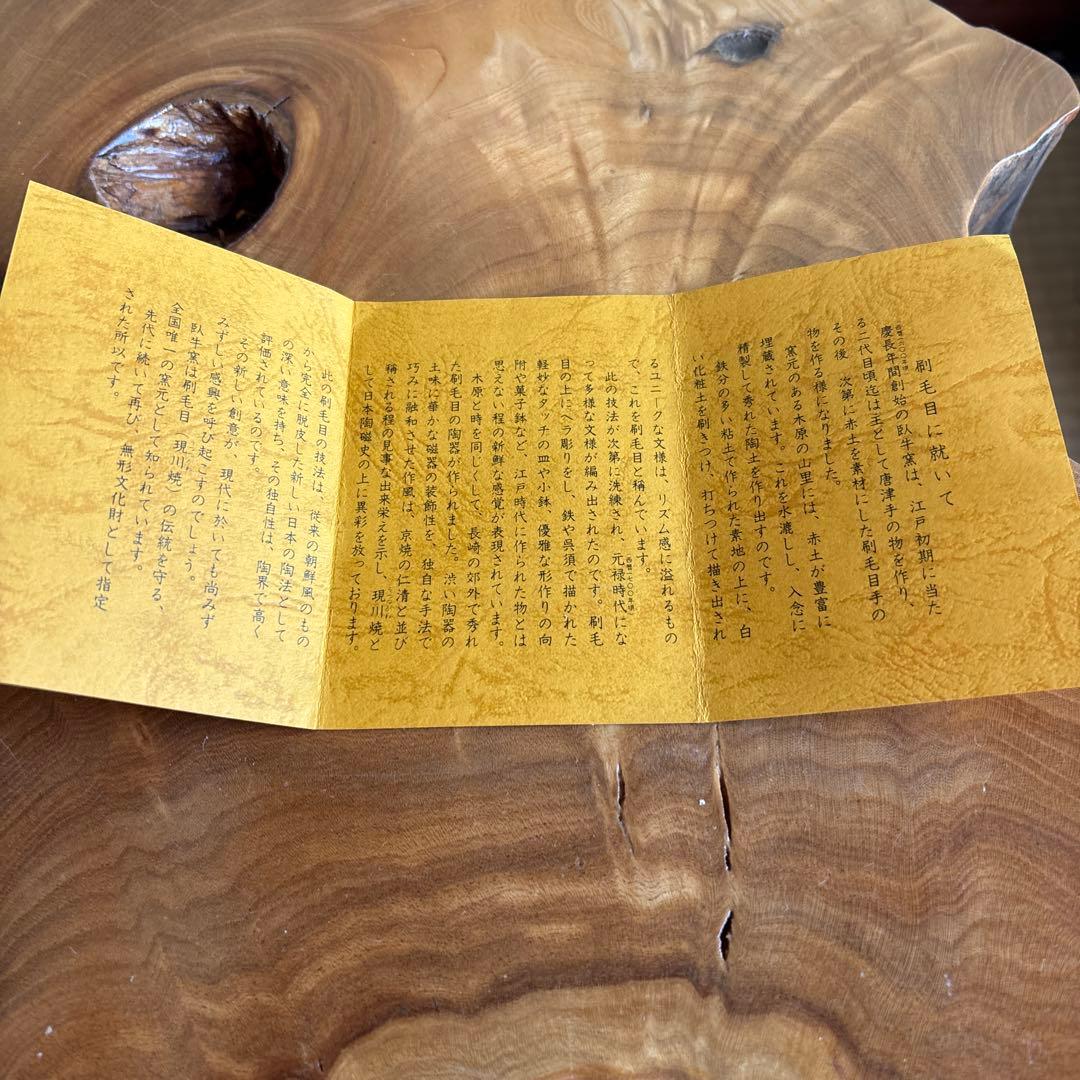 刷毛目に就いて
慶長年間創始の臥牛窯は、江戸初期に当た
る二代目頃迄は主として唐津手の物を作り、
その後 次第に赤土を素材にした刷毛目手の
物を作る様になりました。
窯元のある木原の山里には、赤土が豊富に
埋蔵されています。これを水漉しし、入念に
精製して秀れた陶土を作り出すのです。
鉄分の多い粘土で作られた素地の上に、白
い化粧土を刷きつけ、打ちつけて描き出され
るユニークな文様は、リズム感に溢れるもの
で、これを刷毛目と稱んでいます。
此の技法が次第に洗練され、元禄時代にな
って多様な文様が編み出されたのです。刷毛
目の上にヘラ彫りをし、鉄や呉須で描かれた
軽妙なタッチの皿や小鉢、優雅な形作りの向
附や菓子鉢など、江戸時代に作られた物とは
思えない程の新鮮な感覚が表現されています。
木原と時を同じくして、長崎の郊外で秀れ
た刷毛目の陶器が作られました。渋い陶器の
土味に華かな磁器の装飾性を、独自な手法で
巧みに融和させた作風は、京焼の仁清と並び
稱される程の見事な出来栄えを示し、現川焼と
して日本陶磁史の上に異彩を放っております。
此の刷毛目の技法は、従来の朝鮮風のもの
から完全に脱皮した新しい日本の陶法として
の深い意味を持ち、その独自性は、陶界で高く
評価されているのです。
その新しい創意が、現代に於いても尚みず
みずしい感興を呼び起こすのでしょう。
臥牛窯は刷毛目(現川焼)の伝統を守る、
全国唯一の窯元として知られています。
先代に続いて再び、無形文化財として指定
された所以です。